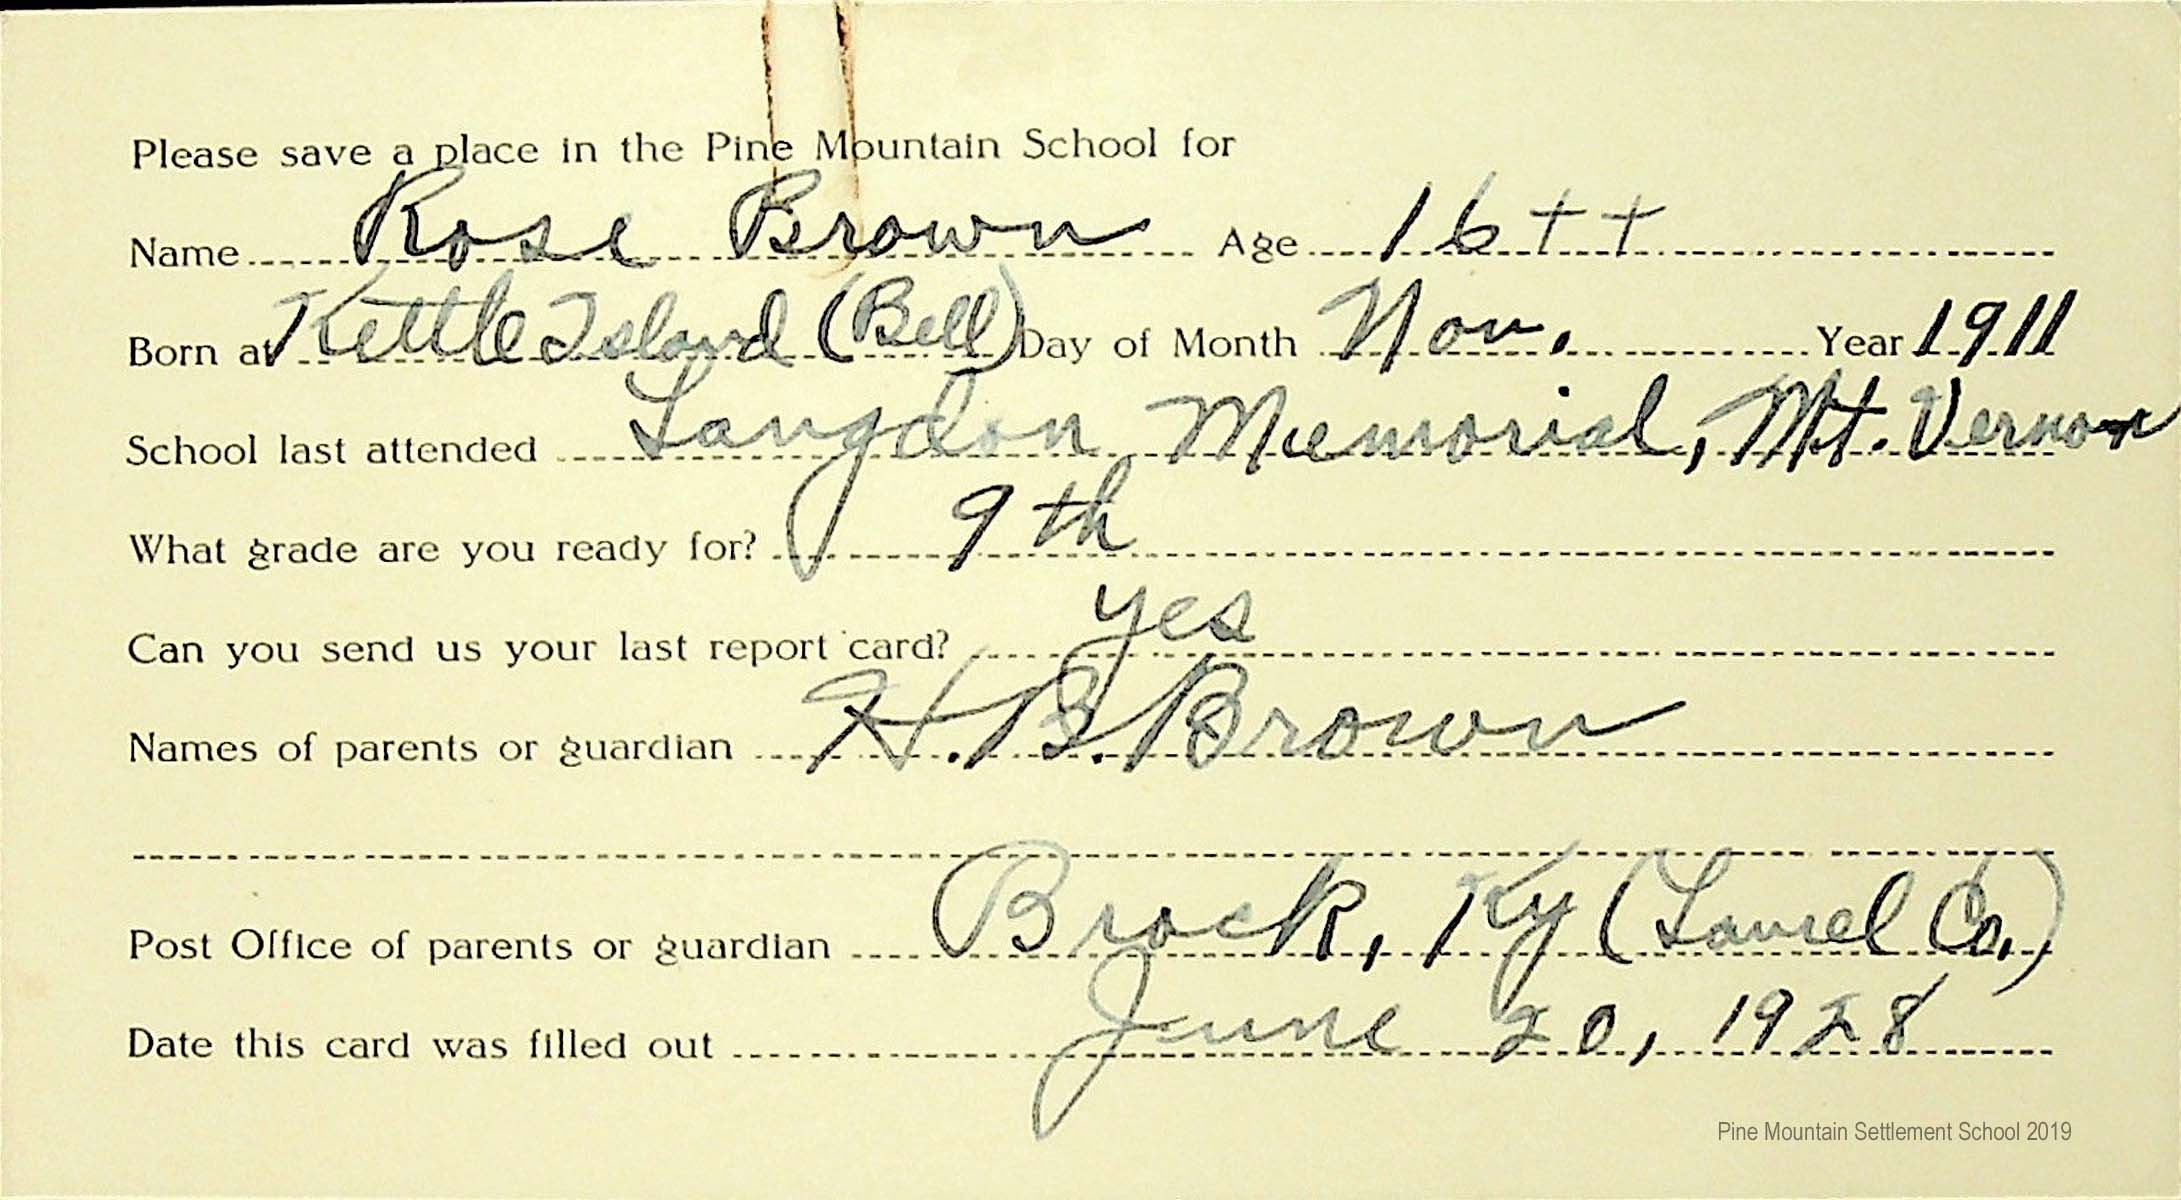 Please save a place in the Pine Mountain School for
Name Rose Brown Age 16 + +
Born at Kettle Island (Bell) Day of Month Nov. Year 1911
School last attended Langdon Memorial, Mt. Vernon
What grade are you ready for? 9th
Can you send us your last report card? yes
Names of parents or guardian H. B. Brown
Post Office of parents or guardian Brock, Ky (Laurel Co.)
Date this card was filled out June 20, 1928
Pine Mountain Settlement School 2019